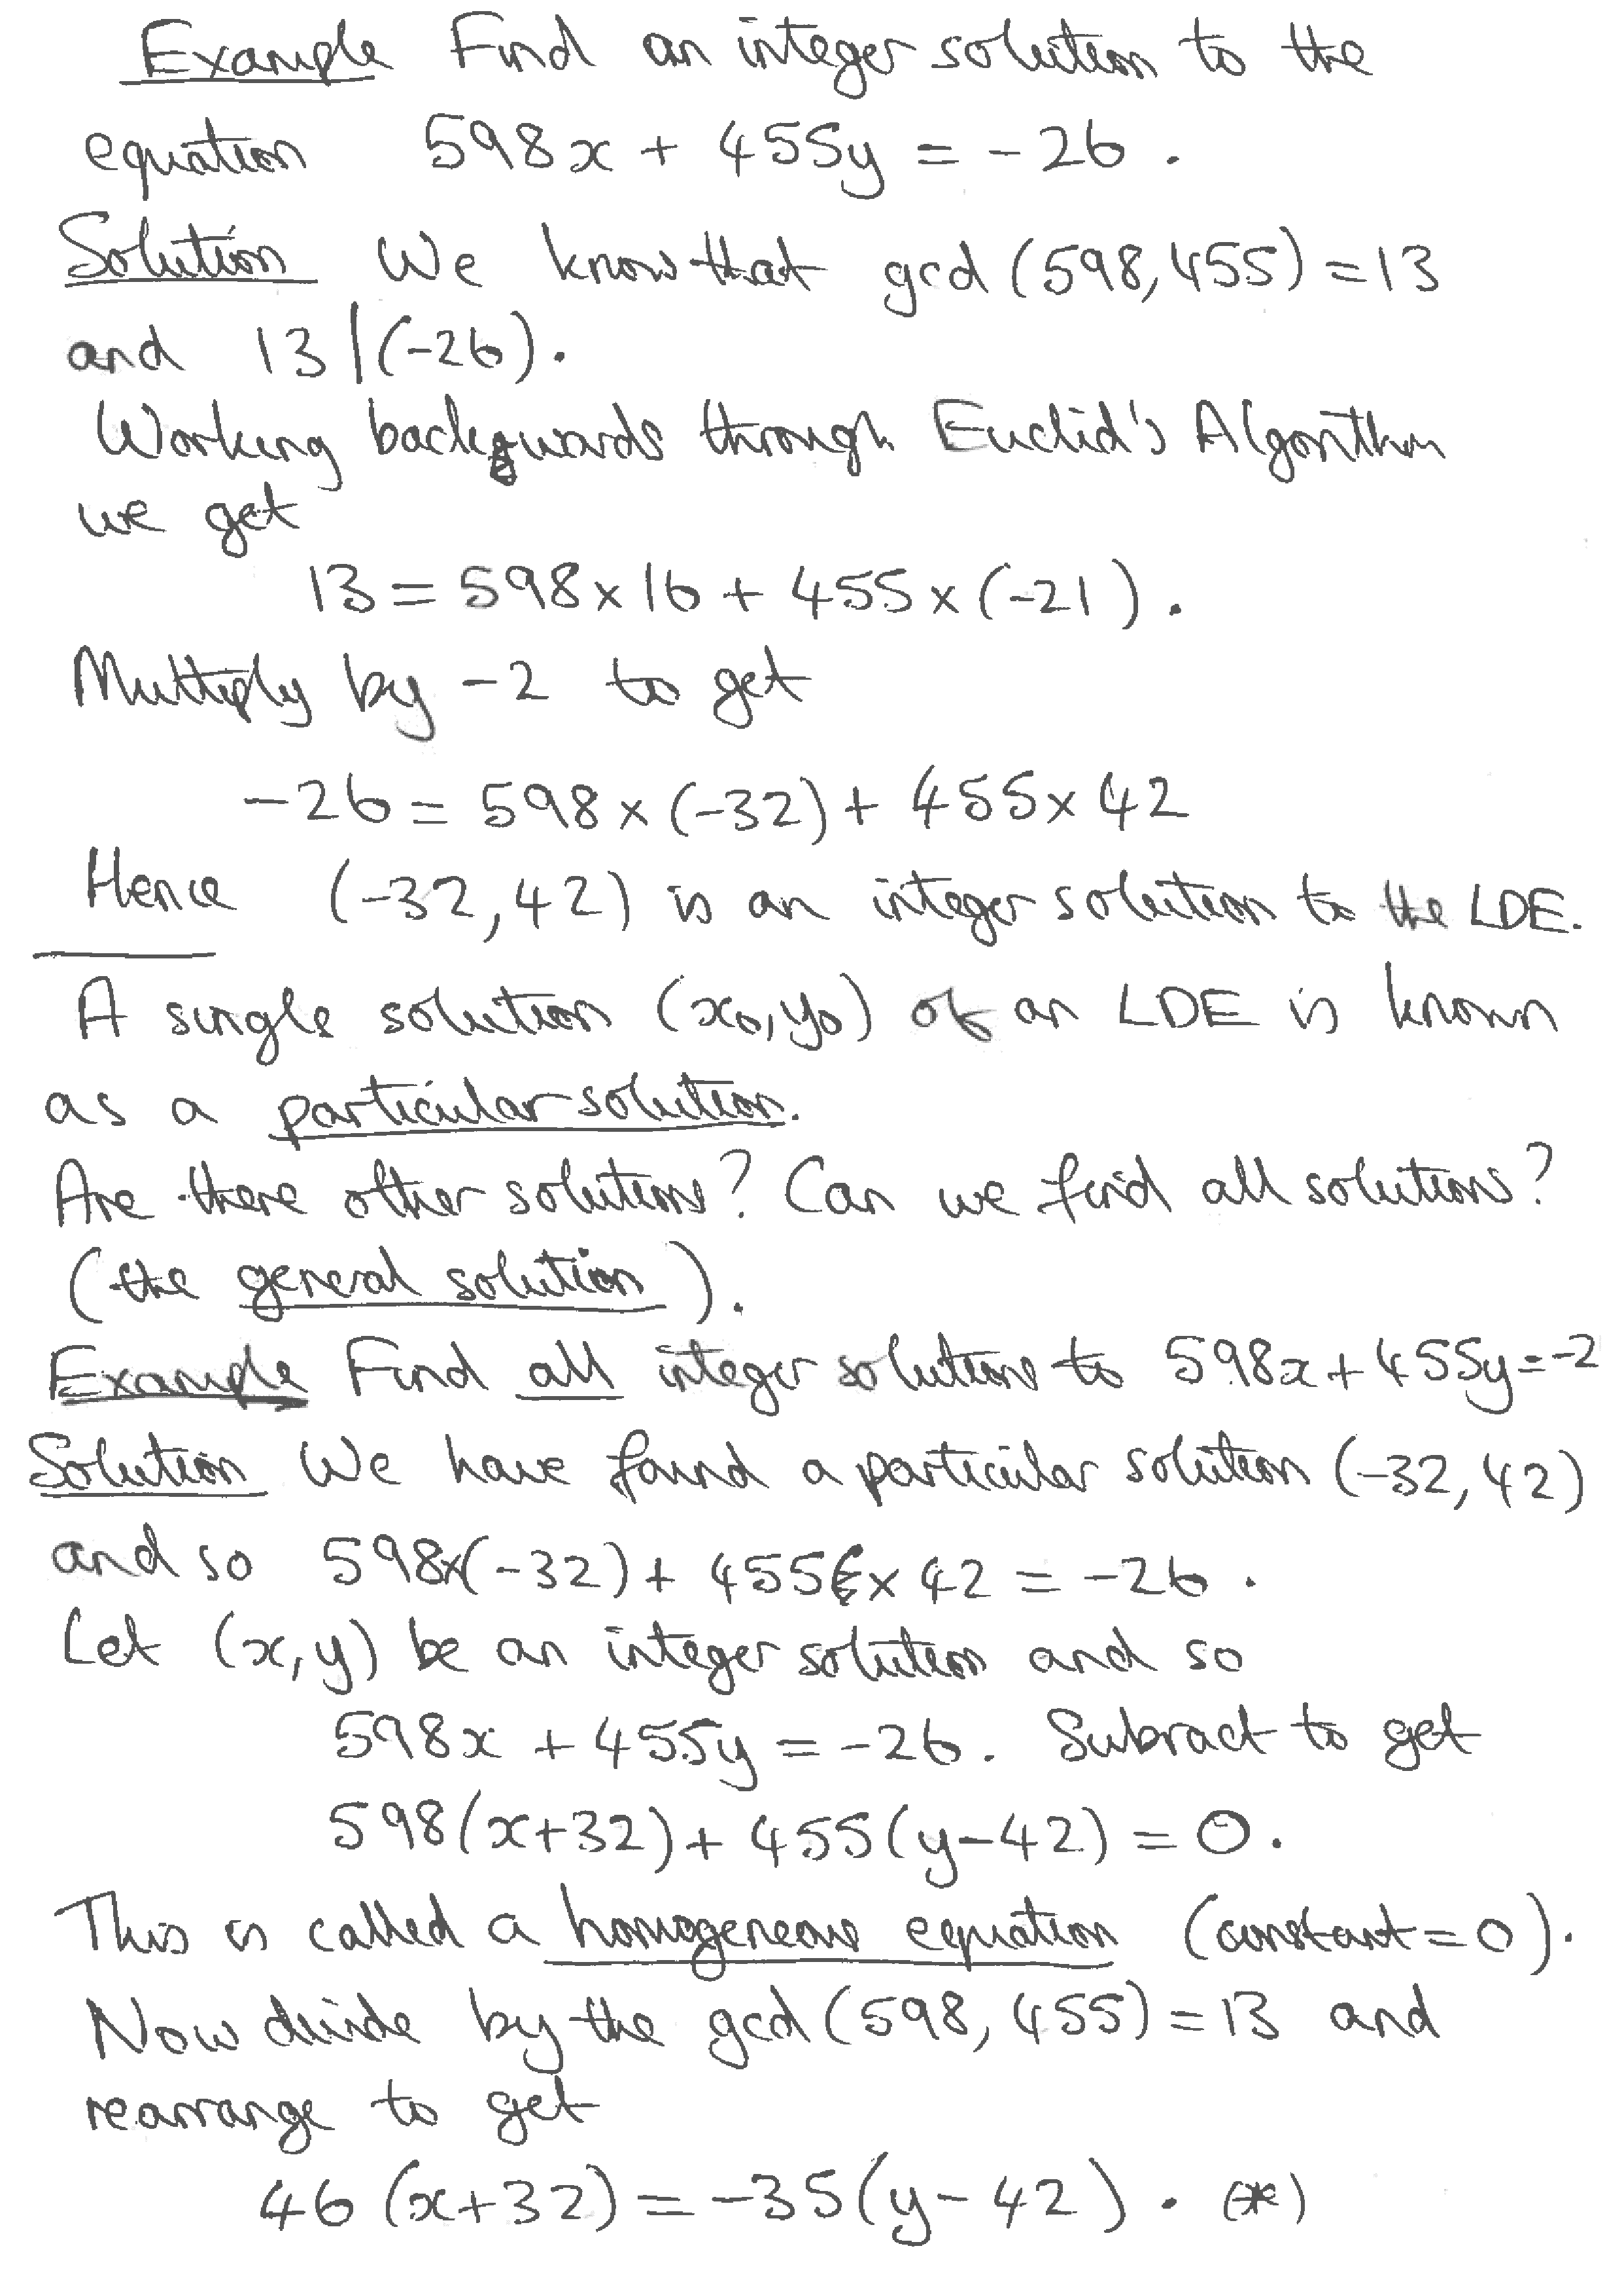 Example Find an integer solution to the
equation 598x + 455y = -26.
Solution We know that gcd (598,455) = 13
and 13 | (-26).
Working backwards through Euclid's Algorithm
we get
13 = 598 × 16 + 455 × (-21).
Multiply by -2 to get
-26 = 598 × (-32) + 455 × 42
Hence (-32, 42) is an integer solution to the LDE.
A single solution (x₀, y₀) of an LDE is known
as a particular solution.
Are there other solutions? Can we find all solutions?
(the general solution).
Example Find all integer solutions to 598x + 455y = -2
Solution We have found a particular solution (-32, 42)
and so 598×(-32) + 455 × 42 = -26.
Let (x, y) be an integer solution and so
598x + 455y = -26. Subract to get
598(x+32) + 455(y-42) = 0.
This is called a homogeneous equation (constant = 0).
Now divide by the gcd (598, 455) = 13 and
rearrange to get
46 (x+32) = -35(y-42). (*)